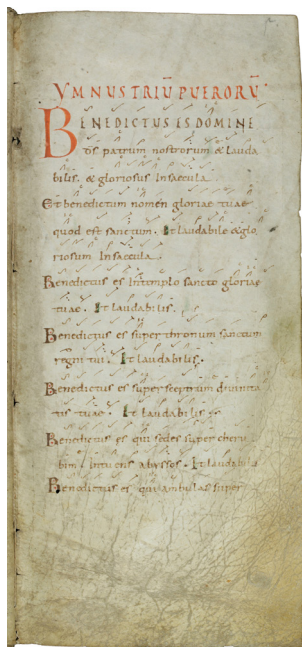 YMNUS TRIŪ PUERORŪ
BENEDICTUS ES DOMINE
ds patrum nostrorum & lauda
bilis. & gloriosus Insaecula
Et benedictum nomen gloriae tuae
quod est sanctum. Et laudabile & glo
riosum Insaecula.
Benedictus es Intemplo sancto gloriae
tuae. Et laudabilis.
Benedictus es super thronum sanctum
regni tui. Et laudabilis.
Benedictus es super sceptrum divinita
tis tuae. Et laudabilis
Benedictus es qui sedes super cheru
bim. Intuens abyssos. Et laudabilis
Benedictus es qui ambulas super